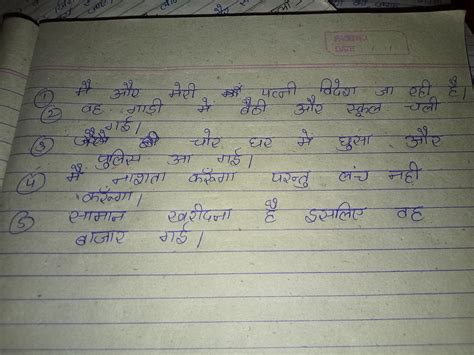 ① मै और मेरी पत्नी विदेश जा रही है।
② वह गाडी में बैठी और स्कूल चली
गई।
③ चोर घर मे घुसा और
पुलिस आ गई।
④ मै नाशता करूँगा परन्तु लंच नही
करूँगा।
⑤ सामान खरीदना है इसलिए वह
बाजार गई।